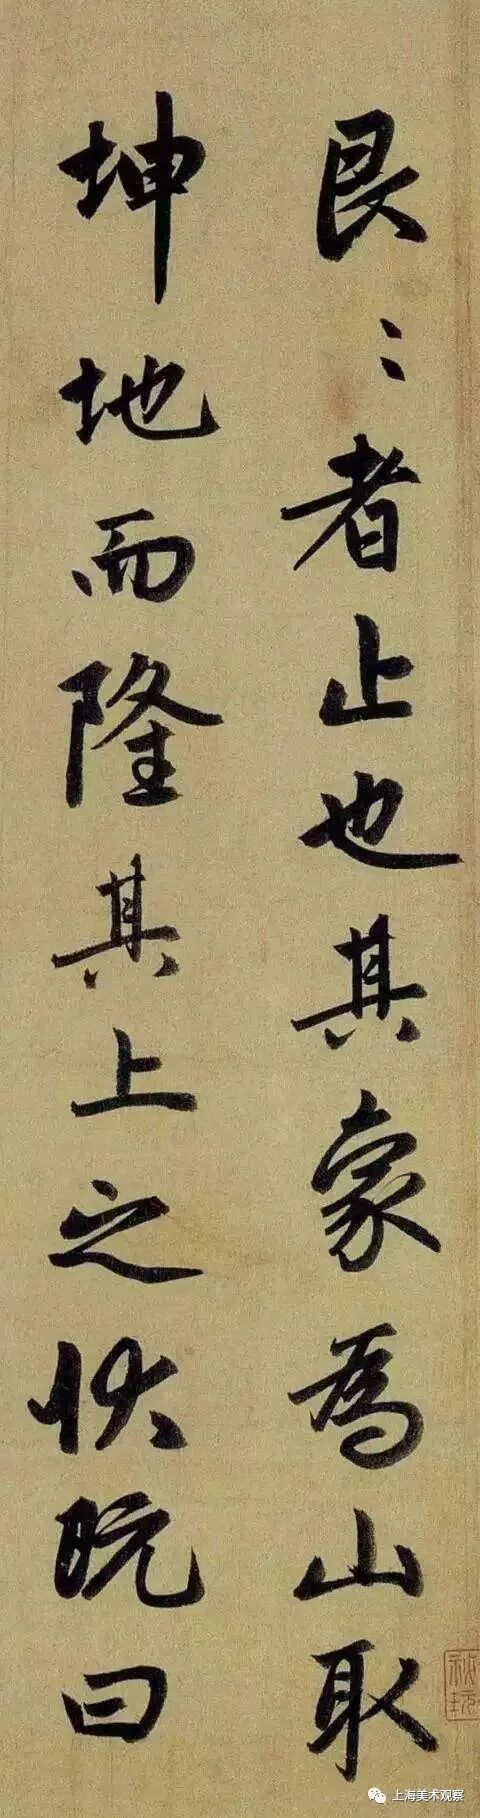 艮〻者止也其象為山取
坤地而隆其上之状既曰
上海美术观察